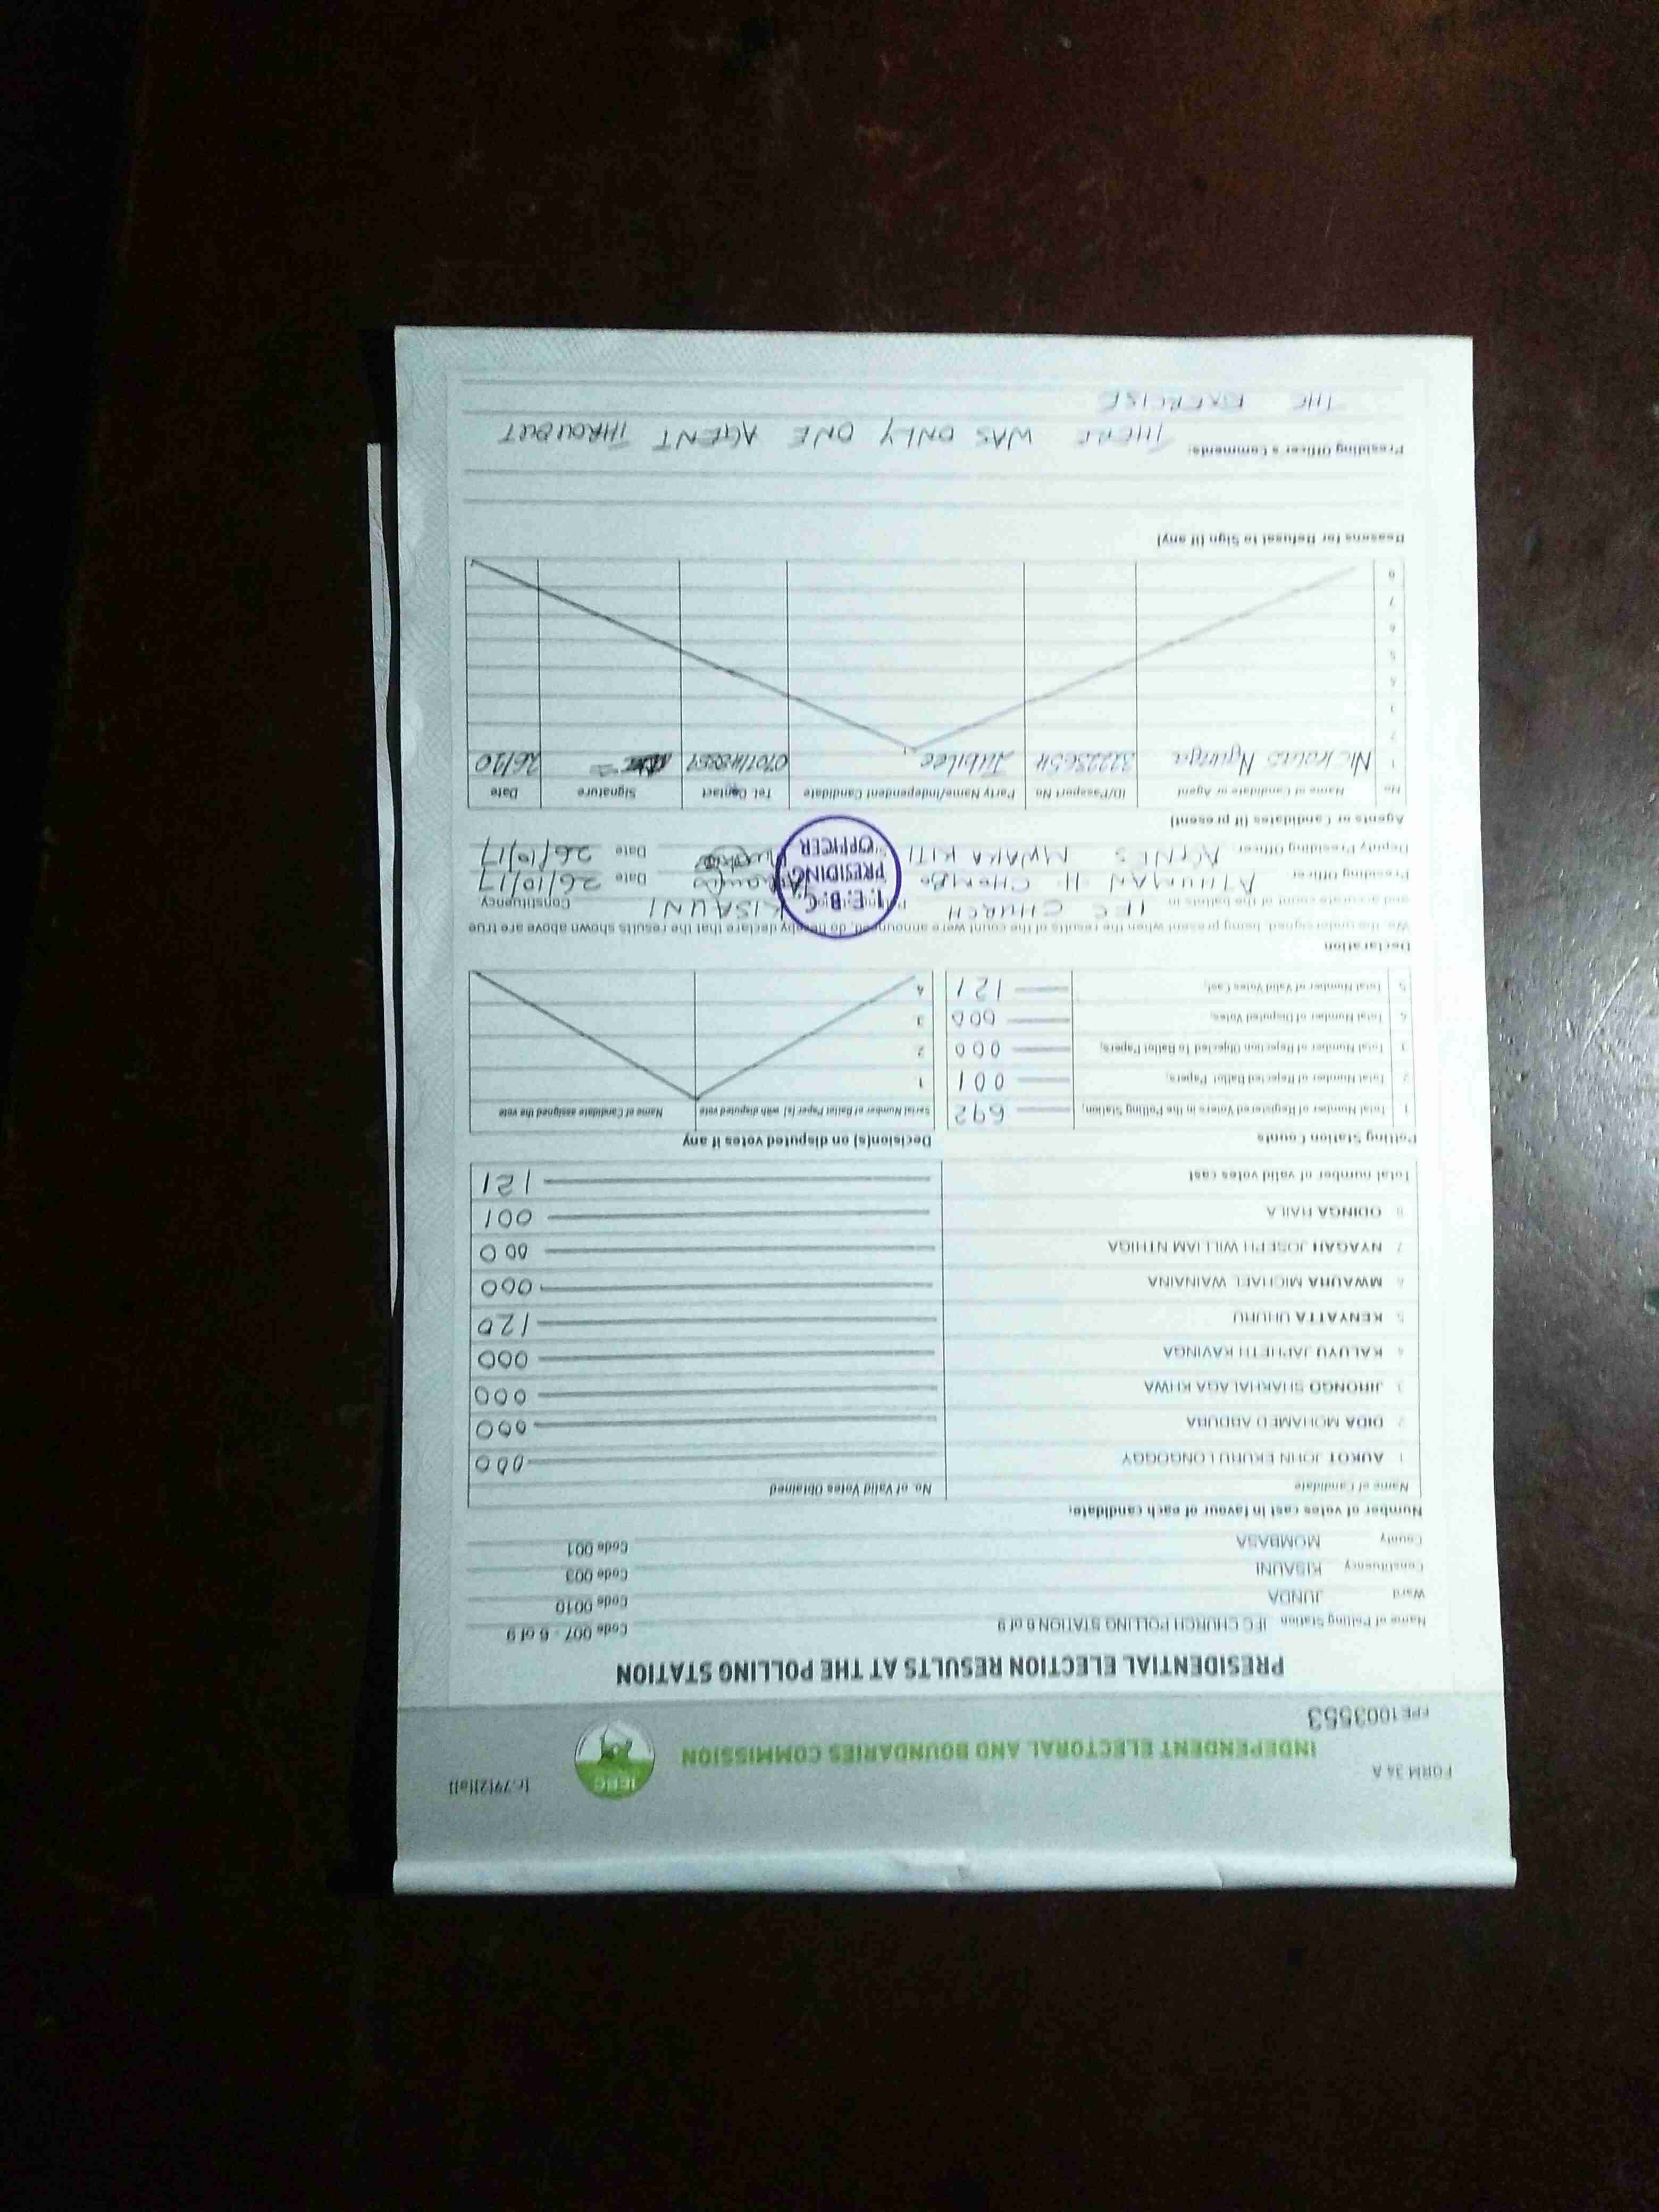 FORM 34 A
[r.79(2)(a)]
IEBC
INDEPENDENT ELECTORAL AND BOUNDARIES COMMISSION
FPE1003553
PRESIDENTIAL ELECTION RESULTS AT THE POLLING STATION
Name of Polling Station IFC CHURCH POLLING STATION 6 of 9 Code 007 - 6 of 9
Ward JUNDA Code 0010
Constituency KISAUNI Code 003
County MOMBASA Code 001
Number of votes cast in favour of each candidate:
Name of Candidate No. of Valid Votes Obtained
1 AUKOT JOHN EKURU LONGOGGY 000
2 DIDA MOHAMED ABDUBA 000
3 JIRONGO SHAKHALAGA KHWA 000
4 KALUYU JAPHETH KAVINGA 000
5 KENYATTA UHURU 120
6 MWAURA MICHAEL WAINAINA 000
7 NYAGAH JOSEPH WILLIAM NTHIGA 000
8 ODINGA RAILA 001
Total number of valid votes cast 121
Polling Station Counts
1 Total Number of Registered Voters in the Polling Station; 692
2 Total Number of Rejected Ballot Papers; 001
3 Total Number of Rejection Objected To Ballot Papers; 000
4 Total Number of Disputed Votes; 000
5 Total Number of Valid Votes Cast; 121
Decision(s) on disputed votes if any
Serial Number of Ballot Paper (s) with disputed vote Name of Candidate assigned the vote
1
2
3
4
Declaration
We the undersigned, being present when the results of the count were announced, do hereby declare that the results shown above are true
and accurate count of the ballots in IFC CHURCH KISAUNI Constituency
Presiding Officer: ATHUMAN H CHOMBO Date 26/10/17
Deputy Presiding Officer: AGNES MWAKA KITI Date 26/10/17
I.E.B.C
PRESIDING
OFFICER
Agents or Candidates (if present)
No Name of Candidate or Agent ID/Passport No Party Name/Independent Candidate Tel. Contact Signature Date
1 Nicholaus Ngunga 32223654 Jubilee 26/10
2
3
4
5
6
7
8
Reasons for Refusal to Sign (if any)
Presiding Officer's Comments: THERE WAS ONLY ONE AGENT THROUOUT
THE EXERCISE